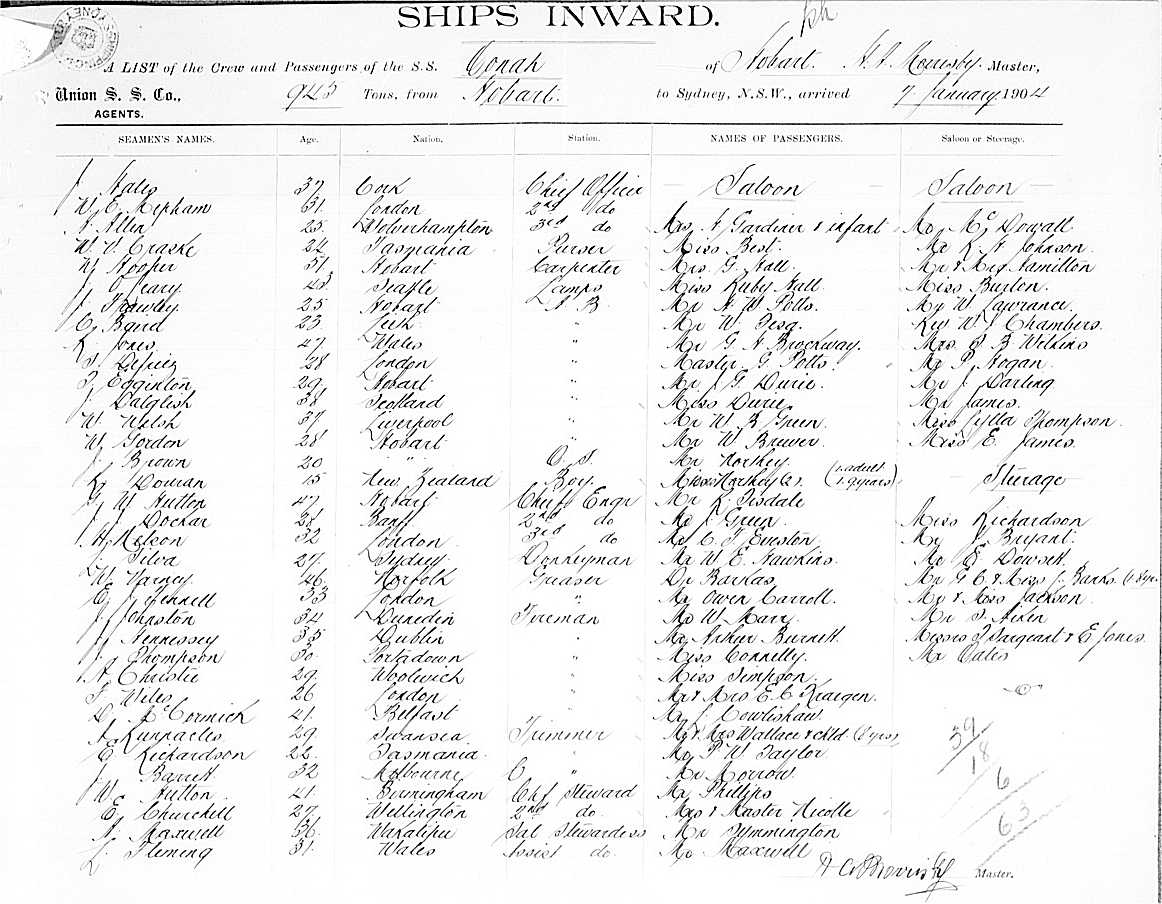 SHIPS INWARD.
A LIST of the Crew and Passengers of the S.S. Oonah of Hobart. Master,
Union S. S. Co., 943 Tons, from Hobart. to Sydney, N.S.W., arrived 7 January 1904
AGENTS.
SEAMEN'S NAMES. Age. Nation. Station. NAMES OF PASSENGERS. Saloon or Steerage.
J Hales 37 Cork Chief Officer Saloon Saloon
W. E. Mepham 31 London 2nd do
A Allen 25 Wolverhampton 3rd do Mrs A Gardiner & infant Mr McDowall
W. V. Craske 24 Tasmania Purser Miss Best. Mr K. A. Johnson
W Hooper 51 Hobart Carpenter Mrs G Hall. Mr & Mrs Hamilton
J O'Leary 43 Seaple Lamps Miss Ruby Hall Miss Burlen.
J. Frawley 25 Hobart A B. Mr A W Potts. Mr W Lawrance.
Baird 23 Leith " Mr W. Rev W. J Chambers.
R Jones 47 Wales " Mr G. A Brockway. Mrs B Wilkins
28 London " Master G Potts. Mr P Hogan
Egginton 29 Hobart " Mr J G Durie. Mr J Darling
J Dalglish 38 Scotland " Miss Durie Mr James.
W Welsh 37 Liverpool " Mr W B Green. Miss Thompson.
W Gordon 28 Hobart " Mr W Brewer. Miss E. James.
J Brown 20 " " O. S. Mr Northey
Dowran 15 New Zealand Boy. Misses Northey (2) (1 adult 1. 9 years) Steerage
G W Hutton 47 Hobart Chief Engr Mr R Tisdale
J. Dockar 28 Banff 2nd do Mr J Green. Miss Richardson
H. Nelson 32 London 3rd do Mr C. J Eveston Mr J Bryant.
L Silva 27 Sydney Donkeyman Mr W E. Hawkins. Mr E Dowsett
W Varney 46 Norfolk Greaser Dr Barkas Mr G C & Miss J. Banks
E J Fennell 33 London " Mr Owen Carroll. Mr & Miss Jackson.
J Johnston 34 Dunedin Fireman Mr W Marr. Mr S. Aiken
J Hennessey 35 Dublin " Mr Arthur Burnett Messrs T Sargeant & E Jones.
J. Thompson 30 Portadown " Miss Connelly. Mr Oates
A. Christie 29 Woolwich " Miss Simpson.
F Wiles 26 London " Mr & Mrs E. C Kraegen.
D. McCormick 41 Belfast " Mr J. Cowlishaw.
A 29 Swansea Trimmer Mr & Mrs Wallace & chld
E. Richardson 22 Tasmania. " Mr P W Taylor 39
J Barrett 32 Melbourne " Mr Morrow 18
W. Hutton 41 Birmingham Chf Steward Mr Phillips 6
E Churchill 27 Wellington 2nd do. Mrs & Master Nicolle
A Maxwell 36 Wakatipu Sal Stewardess Mr Symmington 63
L. Fleming 31 Wales Assist do. Mr Maxwell
Master.